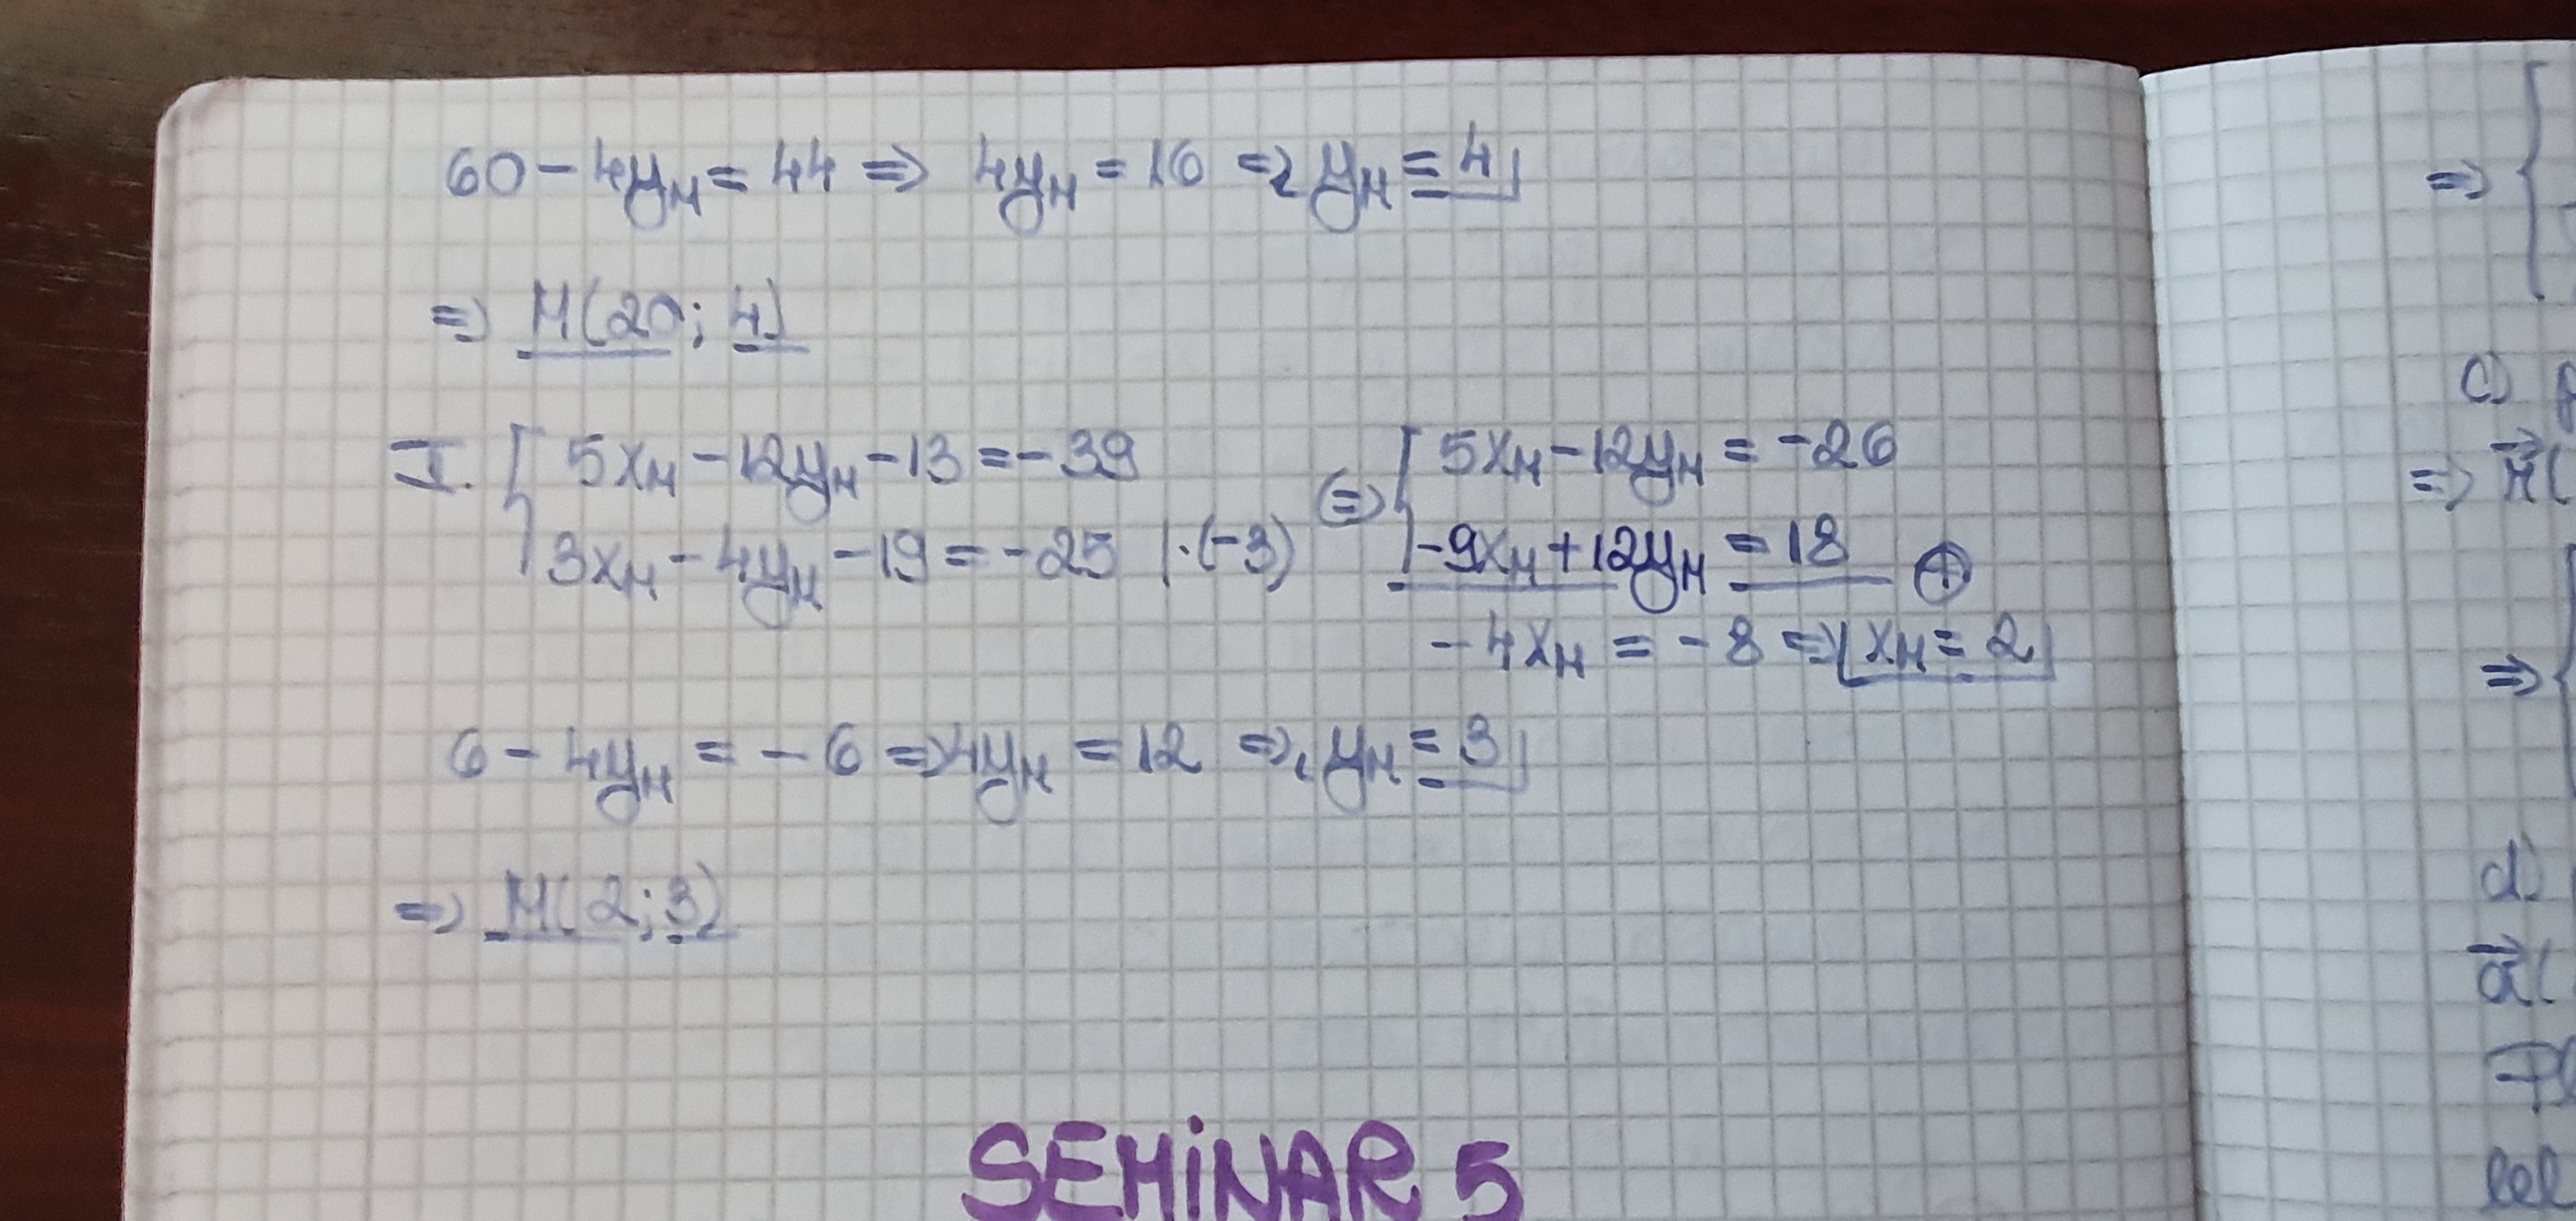 60 - 4y_M = 44 => 4y_M = 16 => y_M = 4
=> M(20; 4)
I. { 5x_M - 12y_M - 13 = -39 (=> { 5x_M - 12y_M = -26
3x_M - 4y_M - 19 = -25 | ·(-3) -9x_M + 12y_M = 18 ⊕
-4x_M = -8 => x_M = 2
6 - 4y_M = -6 => 4y_M = 12 => y_M = 3
=> M(2; 3)
SEMiNAR 5
=> {
c)
=> M(
=> {
d)
a(